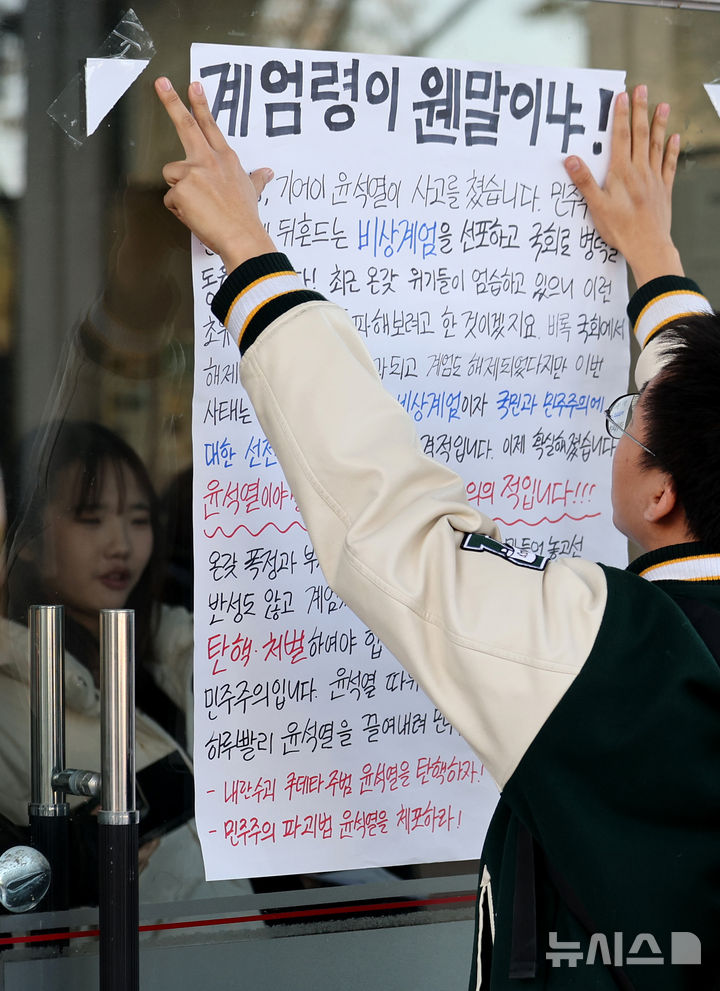 계엄령이 웬말이냐!
기어이 윤석열이 사고를 쳤습니다. 민주
뒤흔드는 비상계엄을 선포하고 국회로 병력
동 다! 최근 온갖 위기들이 엄습하고 있으니 이런
초 파해보려고 한 것이겠지요. 비록 국회에서
해제 가 되고 계엄도 해제되었다지만 이번
사태는 비상계엄이자 국민과 민주주의에
대한 선전 격적입니다. 이제 확실해졌습니다
윤석열이야 의의 적입니다!!!
온갖 폭정과 부 만들어 놓고선
반성도 않고 계엄
탄핵·처벌하여야 합
민주주의입니다. 윤석열 따위
하루빨리 윤석열을 끌어내려 민
- 내란수괴 쿠데타 주범 윤석열을 탄핵하자!
- 민주주의 파괴범 윤석열을 체포하라!
뉴시스